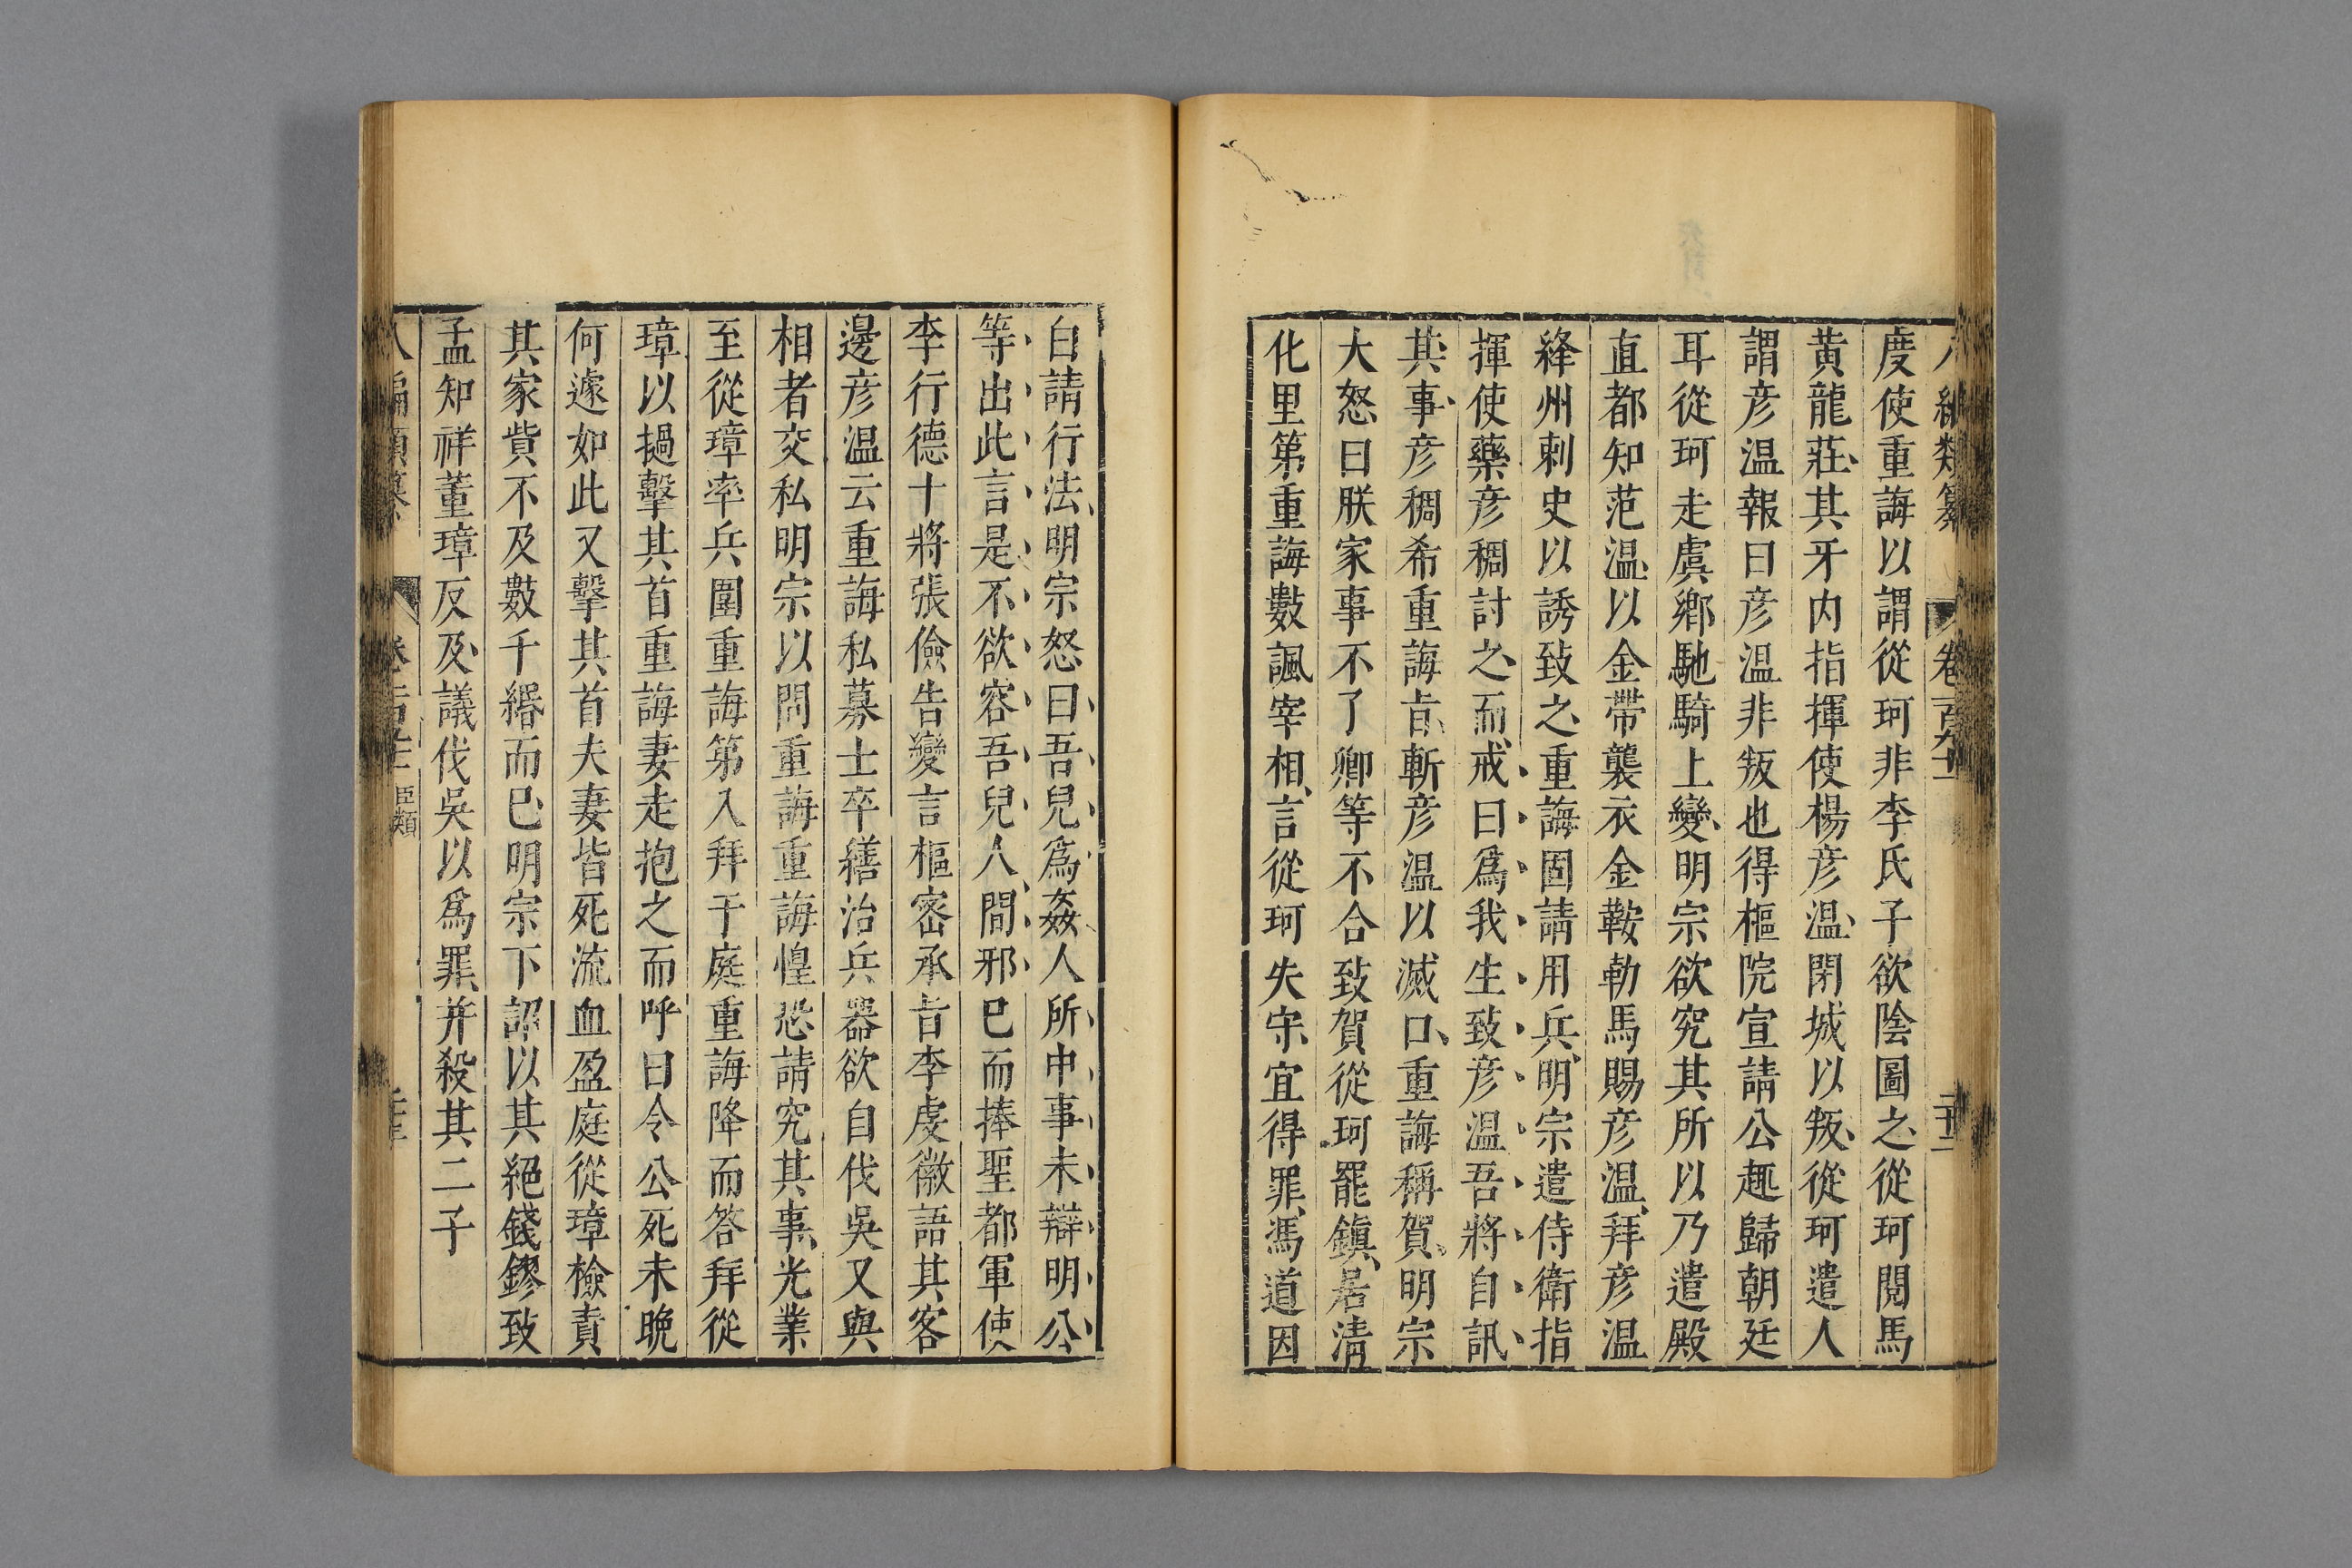 度使重誨以謂從珂非李氏子欲陰圖之從珂閱馬
黃龍莊其牙内指揮使楊彦温閉城以叛從珂遣人
謂彦温報曰彦温非叛也得樞院宣請公趣歸朝廷
耳從珂走虞鄉馳騎上變明宗欲究其所以乃遣殿
直都知范温以金帶襲衣金鞍勒馬賜彦温拜彦温
絳州刺史以誘致之重誨固請用兵明宗遣侍衛指
揮使藥彦稠討之而戒曰爲我生致彦温吾將自訊
其事彦稠希重誨旨斬彦温以滅口重誨稱賀明宗
大怒曰朕家事不了卿等不合致賀從珂罷鎮居清
化里第重誨數諷宰相言從珂失守宜得罪馮道因
白請行法明宗怒曰吾兒爲姦人所中事未辯明公
等出此言是不欲容吾兒人間邪巳而捧聖都軍使
李行德十將張儉告變言樞密承旨李虔徽語其客
邊彦温云重誨私募士卒繕治兵器欲自伐吳又與
相者交私明宗以問重誨重誨惶恐請究其事光業
至從璋率兵圍重誨第入拜于庭重誨降而答拜從
璋以檛擊其首重誨妻走抱之而呼曰令公死未晚
何遽如此又擊其首夫妻皆死流血盈庭從璋檢責
其家貲不及數千緡而巳明宗下詔以其絕錢鏐致
孟知祥董璋反及議伐吳以爲罪并殺其二子
臣類